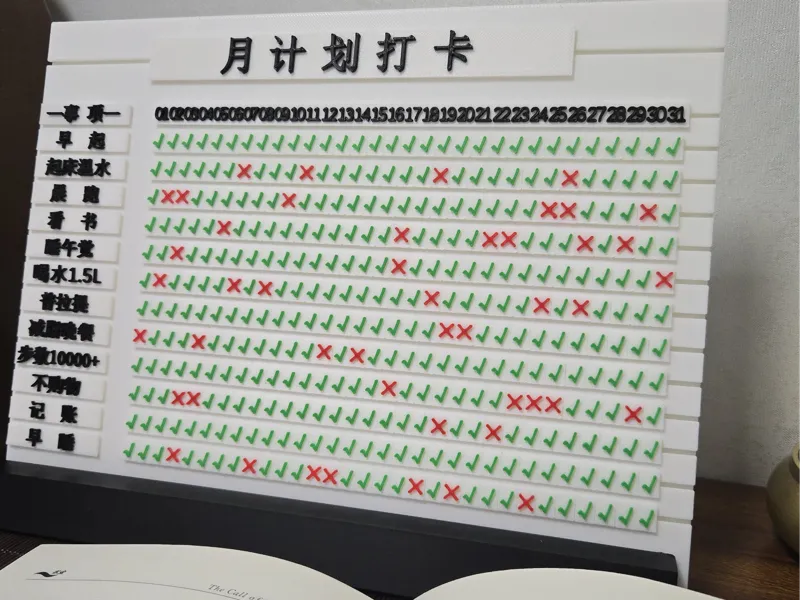 月计划打卡
事 项 01 02 03 04 05 06 07 08 09 10 11 12 13 14 15 16 17 18 19 20 21 22 23 24 25 26 27 28 29 30 31
早 起
起床温水
晨 跑
看 书
睡午觉
喝水1.5L
普拉提
减脂晚餐
步数10000+
不购物
记 账
早 睡
The Call of